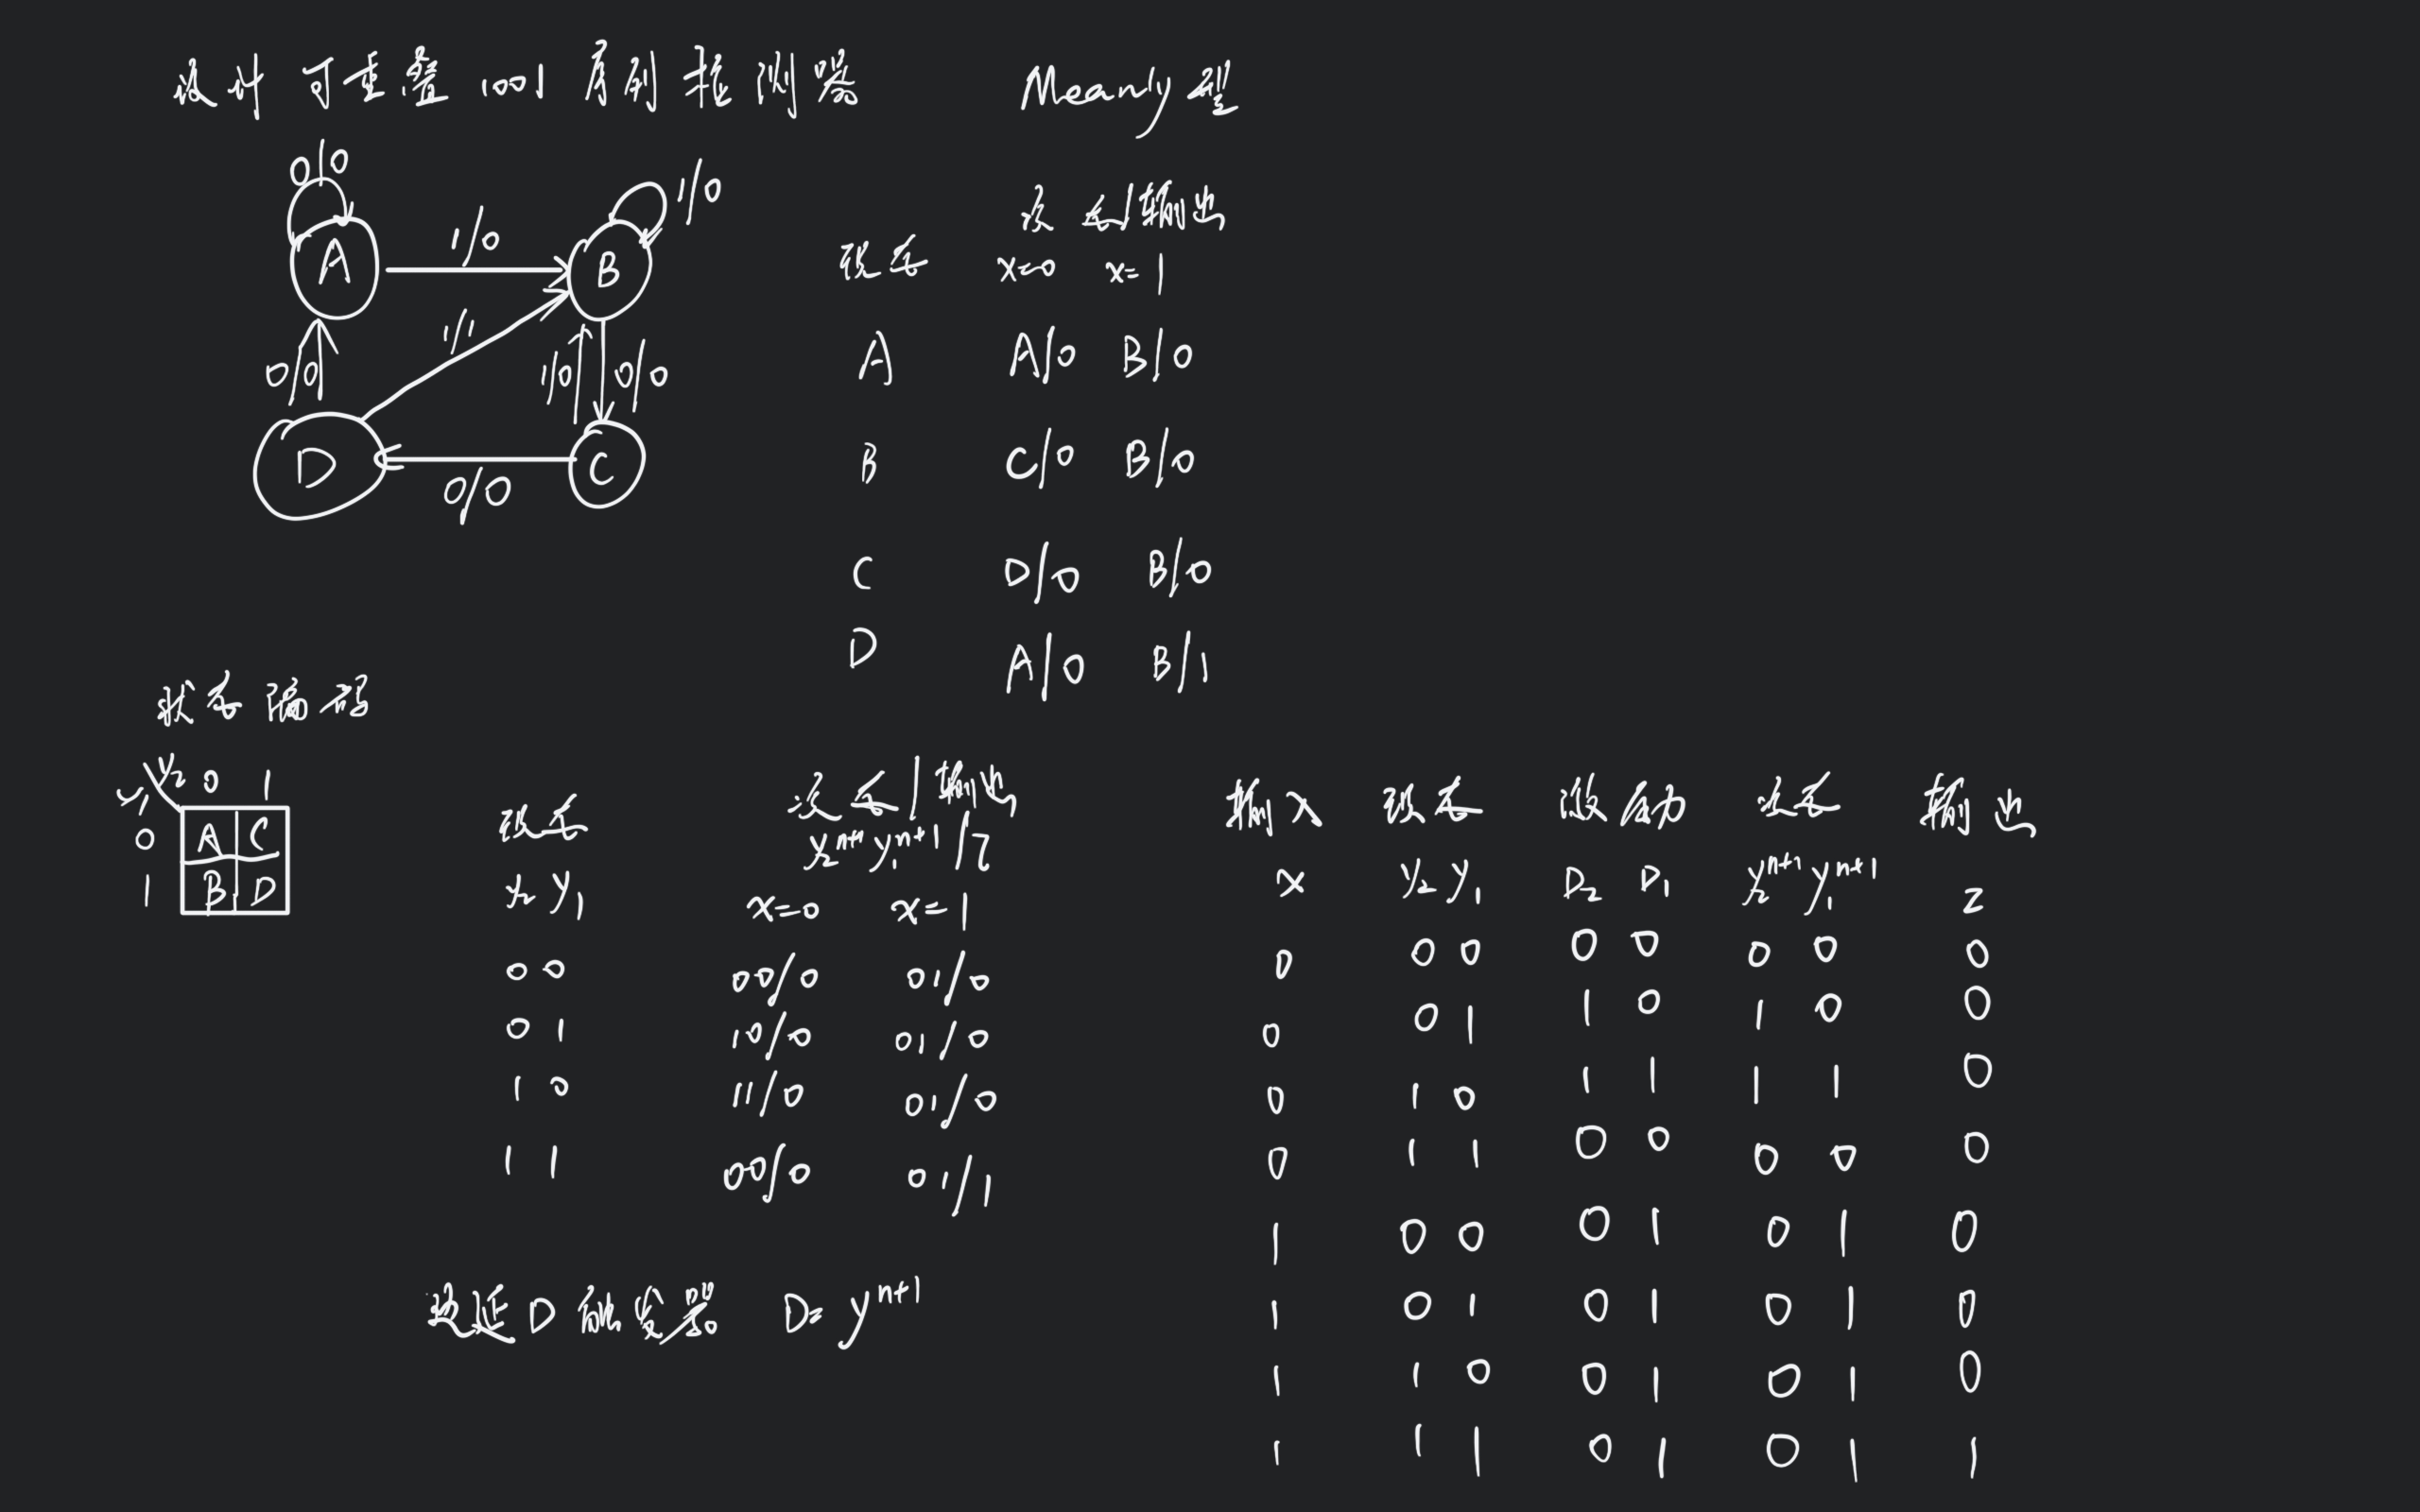 设计 可重叠 1001 序列检测器 Meanly型
0/0
1/0
A
1/0
B
1/1
0/0
1/0
0/0
D
C
0/0
次态/输出
现态 x=0 x=1
A A/0 B/0
B C/0 B/0
C D/0 B/0
D A/0 B/1
状态编码
y1 y2 0 1
0 A C
1 B D
现态 次态/输出
y2 y1 y2^n+1 y1^n+1/Z
x=0 x=1
00 00/0 01/0
01 10/0 01/0
10 11/0 01/0
11 00/0 01/1
边延D触发器 D=y^n+1
输入 现态 激励 次态 输出
x y2 y1 D2 D1 y2^n+1 y1^n+1 Z
0 0 0 0 0 0 0 0
0 0 1 1 0 1 0 0
0 1 0 1 1 1 1 0
0 1 1 0 0 0 0 0
1 0 0 0 1 0 1 0
1 0 1 0 1 0 1 0
1 1 0 0 1 0 1 0
1 1 1 0 1 0 1 1